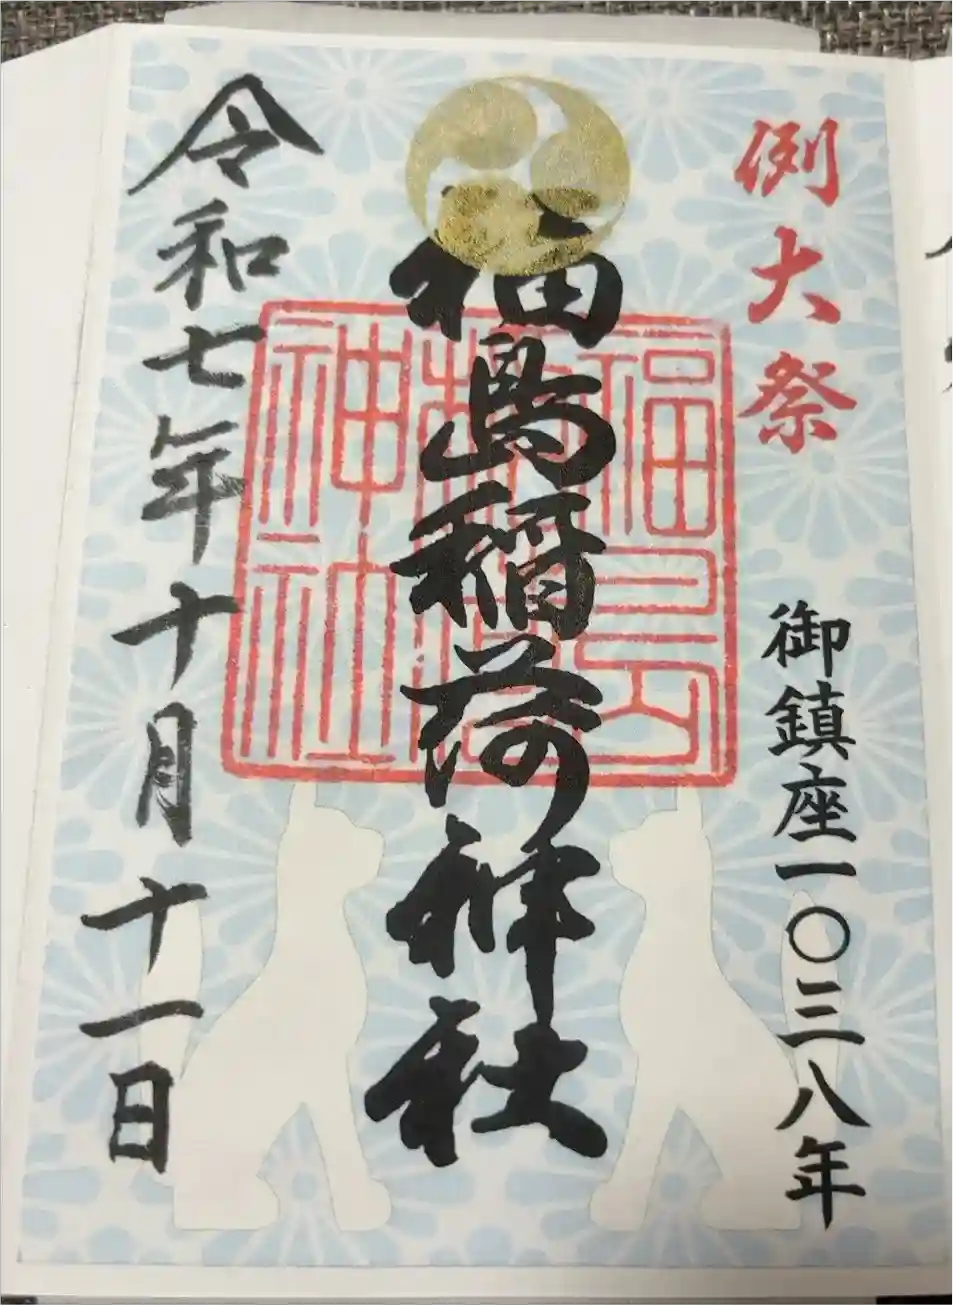 例大祭
御鎮座一〇三八年
福島稲荷神社
福島
稲荷
神社
令和七年十月十一日